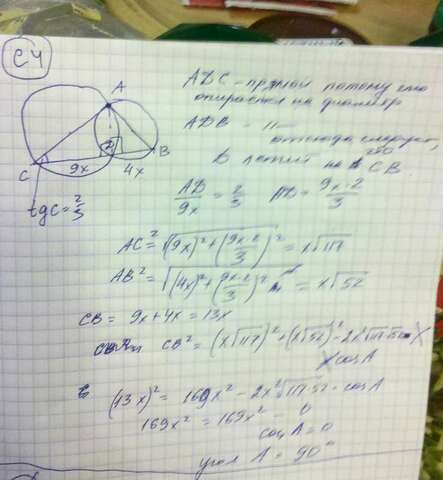 C4
A
ADC - прямой потому что
опирается на диаметр
ADB - 11 -
отсюда следует,
D лежит на CB
C
9x
4x
B
tgC = 2/3
AD/9x = 2/3 AD = 9x·2/3
AC² = √((9x)² + (9x·2/3)²) = x√117
AB² = √((4x)² + (9x·2/3)²) = x√52
CB = 9x + 4x = 13x
CB² = (x√117)² + (x√52)² - 2x²√117·52 ·
x cosA
(13x)² = 169x² - 2x²√117·52 · cosA
169x² = 169x² - 0
cosA = 0
угол A = 90°